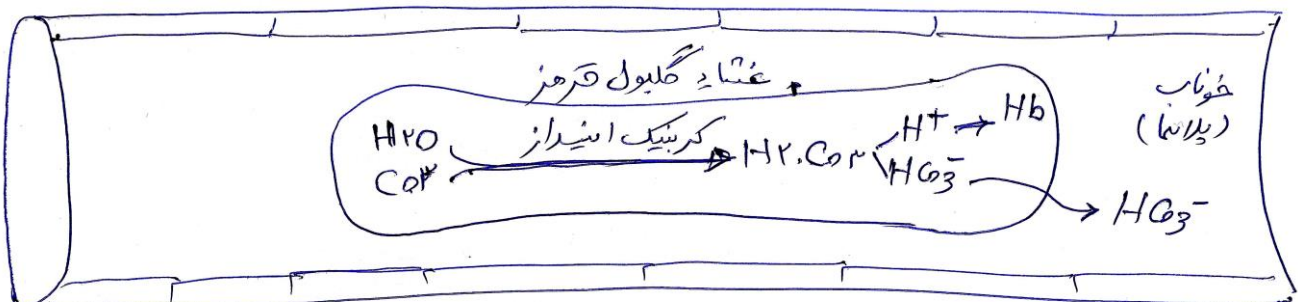 غشاء گلبول قرمز
خوناب
(پلاسما)
H۲O
کربنیک انیدراز
CO۲
H۲.CO۳
H+ → Hb
HCO3-
HCO3-